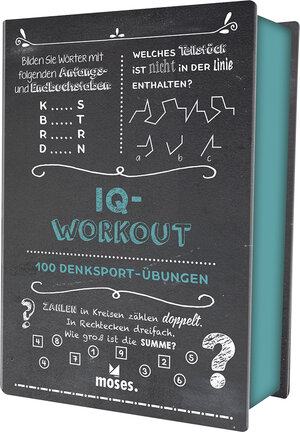 Bilden Sie Wörter mit
folgenden Anfangs-
und Endbuchstaben:
K ..... S
B ..... T
R ..... R
D ..... N
WELCHES Teilstück
iST nicht iN DER Linie
ENTHALTEN?
a b c
IQ-
WORKOUT
100 DENKSPORT-ÜBUNGEN
?
ZAHLEN in Kreisen zählen doppelt.
In Rechtecken dreifach.
Wie groß ist die SUMME?
?
4 8 4 7 1 9 2 3 6
moses.